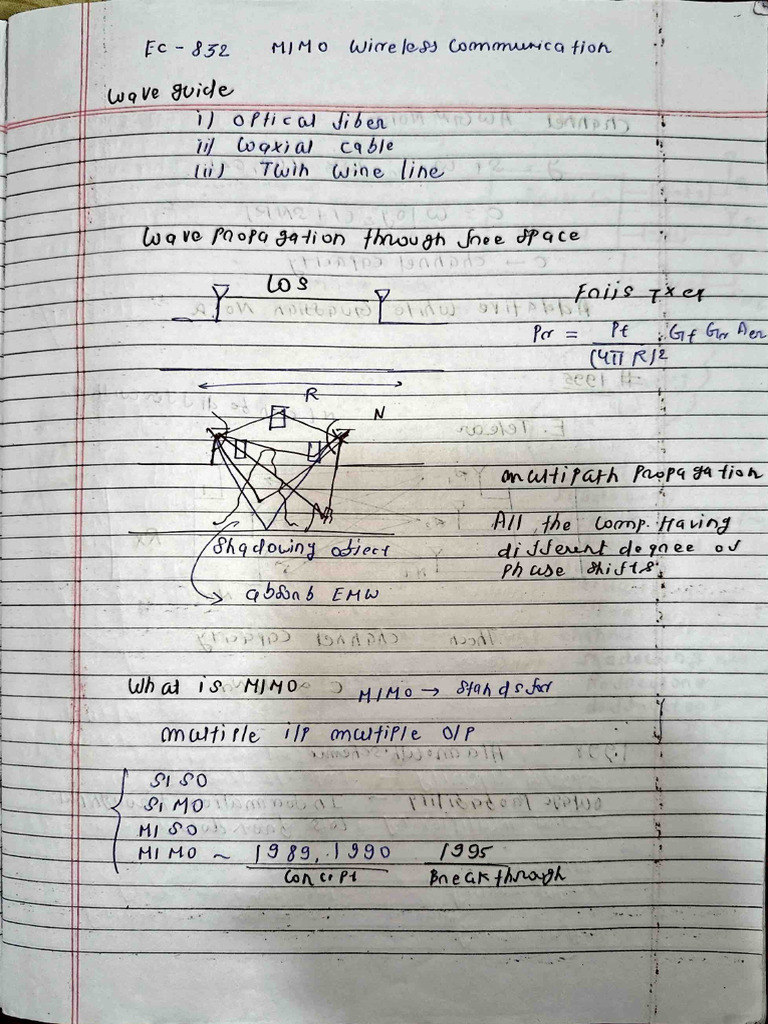 EC-832 MIMO Wireless Communication
Wave guide
i) Optical fiber
ii) Coaxial cable
iii) Twin wine line
Wave propagation through free space
LOS
Friis Txer
Pr = Pt / (4π R)² Gt Gr Aer
R
N
multipath propagation
All the comp. Having
different degree of
phase shifts
Shadowing object
absorb EMW
What is MIMO
MIMO → Stands for
multiple i/p multiple O/P
SISO
SIMO
MISO
MIMO ~ 1989, 1990 1995
Concept Breakthrough